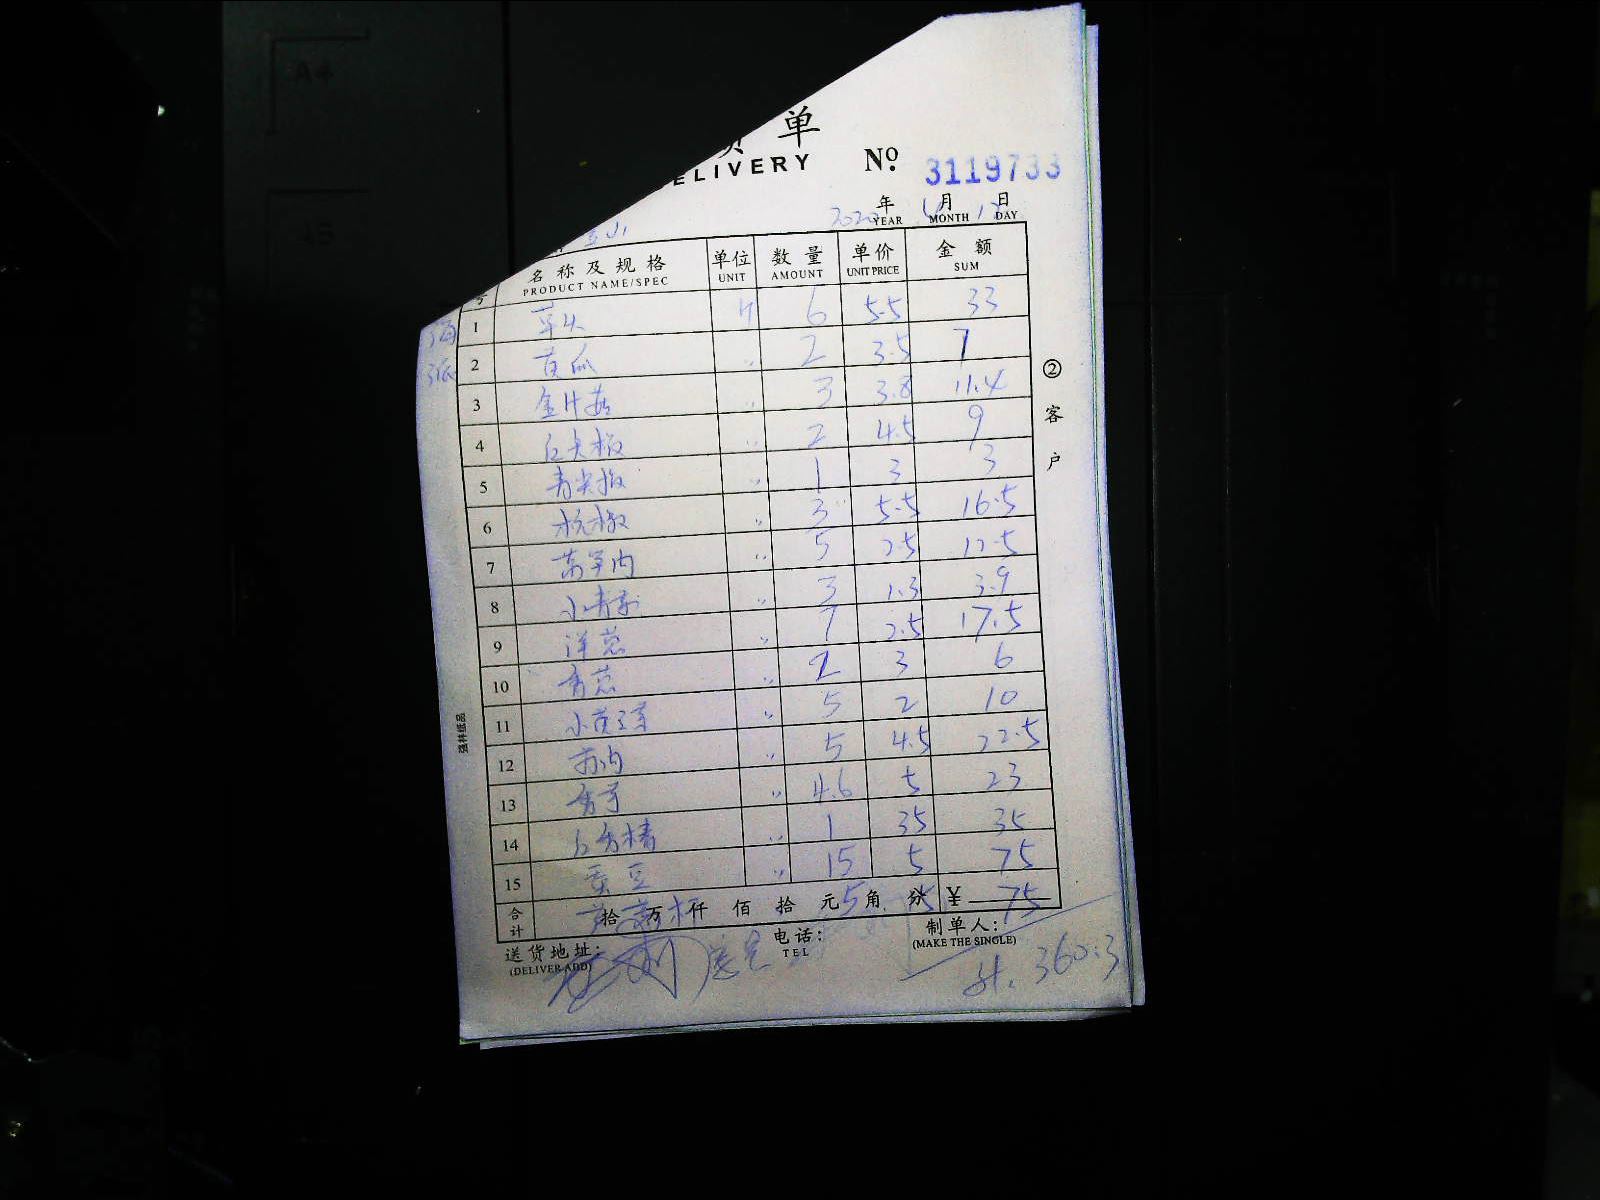 单
DELIVERY № 3119733
2020 年 月 日
YEAR MONTH DAY
名称及规格 单位 数量 单价 金额
PRODUCT NAME/SPEC UNIT AMOUNT UNIT PRICE SUM
1 草头 斤 6 5.5 33
2 黄瓜 〃 2 3.5 7
3 金针菇 〃 3 3.8 11.4
4 红尖椒 〃 2 4.5 9
5 青尖椒 〃 1 3 3
6 杭椒 〃 3 5.5 16.5
7 〃 5 2.5 12.5
8 小青菜 〃 3 1.3 3.9
9 洋葱 〃 7 2.5 17.5
10 香葱 〃 2 3 6
11 〃 5 2 10
12 〃 5 4.5 22.5
13 〃 4.6 5 23
14 〃 1 35 35
15 黄豆 〃 15 5 75
合计 拾 万 仟 佰 拾 元 角 分 ¥ 75
送货地址: 电话: 制单人:
(DELIVER ADD) TEL (MAKE THE SINGLE)
360.3
② 客户
强林纸品